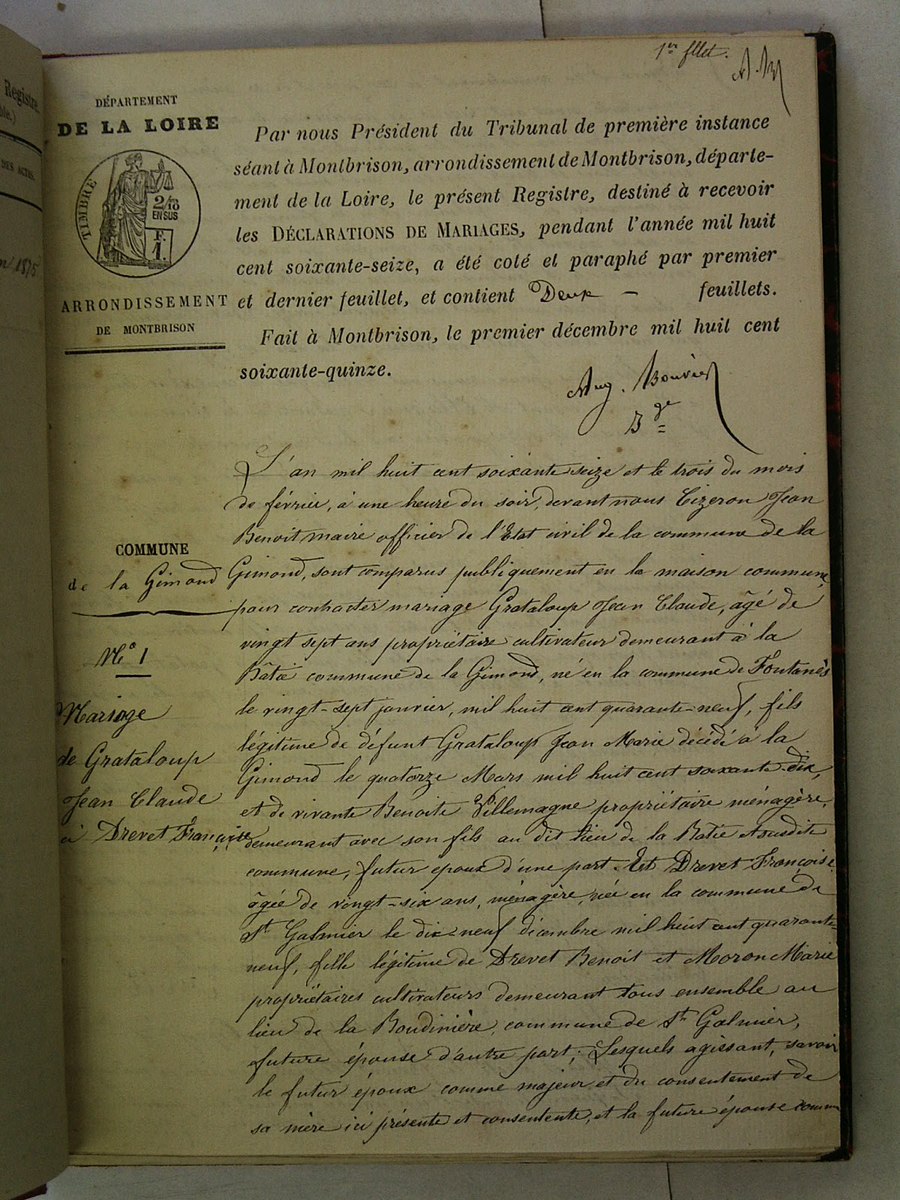 1er fllet.
Registre
DES ACTES.
1875
DÉPARTEMENT
DE LA LOIRE
TIMBRE
2/10
EN SUS
F.
1.
ARRONDISSEMENT
DE MONTBRISON
Par nous Président du Tribunal de première instance
séant à Montbrison, arrondissement de Montbrison, départe-
ment de la Loire, le présent Registre, destiné à recevoir
les DÉCLARATIONS DE MARIAGES, pendant l'année mil huit
cent soixante-seize, a été coté et paraphé par premier
et dernier feuillet, et contient Deux — feuillets.
Fait à Montbrison, le premier décembre mil huit cent
soixante-quinze.
Aug. Bouvier
COMMUNE
de la Gimond
No 1
Mariage
de Grataloup
Jean Claude
et Drevet Françoise
L'an mil huit cent soixante seize et le trois du mois
de février, à une heure du soir, devant nous Cizeron Jean
Benoit maire officier de l'Etat civil de la commune de la
Gimond, sont comparus publiquement en la maison commune
pour contracter mariage Grataloup Jean Claude, âgé de
vingt sept ans propriétaire cultivateur demeurant à la
Bâtie commune de la Gimond, né en la commune de Fontanès
le vingt-sept janvier, mil huit cent quarante-neuf, fils
légitime de défunt Grataloup Jean Marie décédé à la
Gimond le quatorze Mars mil huit cent soixante-dix,
et de vivante Benoite Villemagne propriétaire ménagère,
demeurant avec son fils au dit lieu de la Batie et susdite
commune, futur époux d'une part. Et Drevet Françoise
âgée de vingt-six ans, ménagère, née en la commune de
St Galmier le dix-neuf décembre mil huit cent quarante-
neuf, fille légitime de Drevet Benoit et Moron Marie
propriétaires cultivateurs demeurant tous ensemble au
lieu de la Boudinière, commune de St Galmier,
future épouse d'autre part; Lesquels agissant, savoir
le futur époux comme majeur et du consentement de
sa mère ici présente et consentente, et la future épouse comme